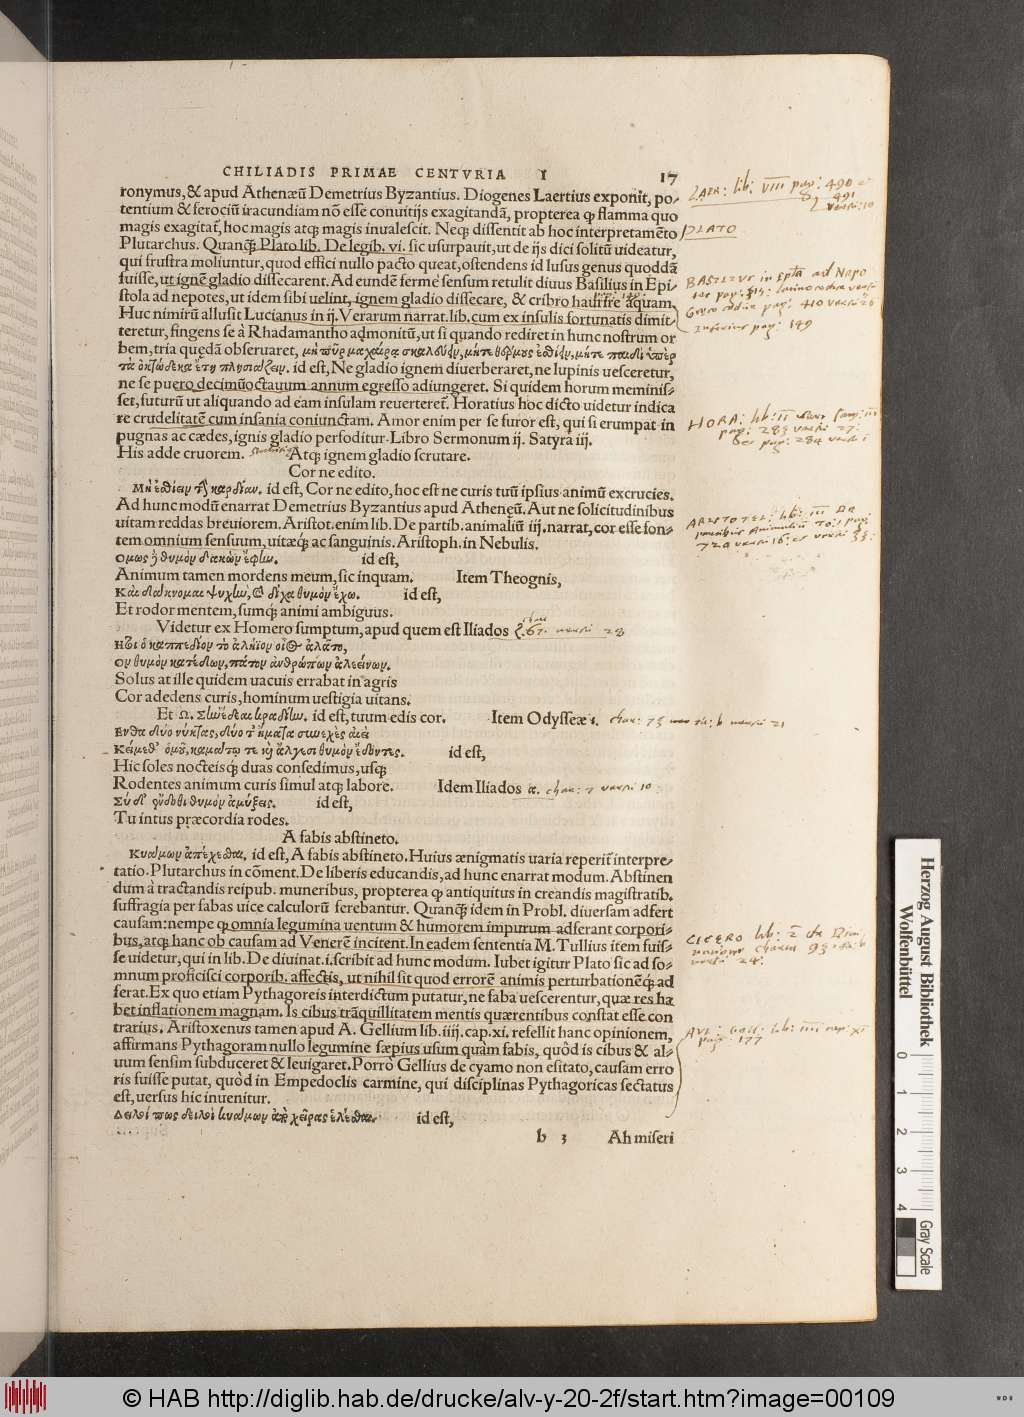 CHILIADIS PRIMAE CENTVRIA I 17
ronymus, & apud Athenæũ Demetrius Byzantius. Diogenes Laertius exponit, po-
tentium & ferociũ iracundiam nõ esse conuitijs exagitandã, propterea ꝙ flamma quo
magis exagitat̃, hoc magis atq; magis inualescit. Neq; dissentit ab hoc interpretamẽto
Plutarchus. Quanq̃ Plato lib. De legib. vi. sic usurpauit, ut de ijs dici solitũ uideatur,
qui frustra moliuntur, quod effici nullo pacto queat, ostendens id lusus genus quoddã
fuisse, ut ignẽ gladio dissecarent. Ad eundẽ fermè sensum retulit diuus Basilius in Epi-
stola ad nepotes, ut idem sibi uelint, ignem gladio dissecare, & cribro haurire ãquam.
Huc nimirũ allusit Lucianus in ij. Verarum narrat. lib. cum ex insulis fortunatis dimit-
teretur, fingens se à Rhadamantho admonitũ, ut si quando rediret in hunc nostrum or
bem, tria quędã obseruaret, μὴ πῦρ μαχαίρᾳ σκαλεύειν, μήτε θέρμους ἐσθίειν, μήτε παιδὶ ὑπὲρ
τὰ ὀκτωκαίδεκα ἔτη πλησιάζειν. id est, Ne gladio ignem diuerberaret, ne lupinis uesceretur,
ne se puero decimũoctauum annum egresso adiungeret. Si quidem horum meminis-
set, futurũ ut aliquando ad eam insulam reuerteret̃. Horatius hoc dicto uidetur indica
re crudelitatẽ cum insania coniunctam. Amor enim per se furor est, qui si erumpat in
pugnas ac cædes, ignis gladio perfoditur. Libro Sermonum ij. Satyra iij.
His adde cruorem. Atq; ignem gladio scrutare.
Cor ne edito.
Μὴ ἐσθίειν τὴν καρδίαν. id est, Cor ne edito, hoc est ne curis tuũ ipsius animũ excrucies.
Ad hunc modũ enarrat Demetrius Byzantius apud Athenęũ. Aut ne solicitudinibus
uitam reddas breuiorem. Aristot. enim lib. De partib. animaliũ iij. narrat, cor esse fon-
tem omnium sensuum, uitæq; ac sanguinis. Aristoph. in Nebulis.
Ομως ἢ θυμὸν δακὼν ἔφην. id est,
Animum tamen mordens meum, sic inquam. Item Theognis,
Καὶ δάκνομαι ψυχὴν, καὶ δίχα θυμὸν ἔχω. id est,
Et rodor mentem, sumq; animi ambiguus.
Videtur ex Homero sumptum, apud quem est Iliados ζ. 67. versu 28
Ητοι ὁ καππεδίον τὸ ἀλήϊον οἶος ἀλᾶτο,
Ον θυμὸν κατέδων, πάτον ἀνθρώπων ἀλεείνων.
Solus at ille quidem uacuis errabat in agris
Cor adedens curis, hominum uestigia uitans.
Et Ω. Σὴν ἔδεαι κραδίην. id est, tuum edis cor. Item Odysseæ ι.
Ενθα δύο νύκτας, δύο τ᾽ ἤματα συνεχὲς αἰεὶ
Κείμεθ᾽ ὁμοῦ, καμάτῳ τε καὶ ἄλγεσι θυμὸν ἔδοντες. id est,
Hic soles nocteisq; duas consedimus, usq;
Rodentes animum curis simul atq; labore. Idem Iliados α. char: 7 versu 10
Σὺ δ᾽ ἔνδοθι θυμὸν ἀμύξεις. id est,
Tu intus præcordia rodes.
A fabis abstineto.
Κυάμων ἀπέχεσθαι. id est, A fabis abstineto. Huius ænigmatis uaria reperit̃ interpre-
tatio. Plutarchus in cõment. De liberis educandis, ad hunc enarrat modum. Abstinen
dum à tractandis reipub. muneribus, propterea ꝙ antiquitus in creandis magistratib.
suffragia per fabas uice calculorũ ferebantur. Quanq̃ idem in Probl. diuersam adfert
causam: nempe ꝙ omnia legumina uentum & humorem impurum adferant corpori-
bus, atq; hanc ob causam ad Venerẽ incitent. In eadem sententia M. Tullius item fuis-
se uidetur, qui in lib. De diuinat. i. scribit ad hunc modum. Iubet igitur Plato sic ad so-
mnum proficisci corporib. affectis, ut nihil sit quod errorẽ animis perturbationẽq; ad
ferat. Ex quo etiam Pythagoreis interdictum putatur, ne faba uescerentur, quæ res ha
bet inflationem magnam. Is cibus trãquillitatem mentis quærentibus constat esse con
trarius. Aristoxenus tamen apud A. Gellium lib. iiij. cap. xi. refellit hanc opinionem,
affirmans Pythagoram nullo legumine sæpius usum quàm fabis, quôd is cibus & al-
uum sensim subduceret & leuigaret. Porrò Gellius de cyamo non esitato, causam erro
ris fuisse putat, quòd in Empedoclis carmine, qui disciplinas Pythagoricas sectatus
est, uersus hic inuenitur.
Δειλοὶ πως δειλοὶ κυάμων ἄπο χεῖρας ἕλεσθαι. id est,
b 3 Ah miseri
LAER: lib: VIII pag: 490
491
versu: 10
PLATO
BASILIUS in Epĩa ad Nepo
pag:
pag: 410 versu 26
Inferius pag: 149
HORA: lib: II Sat: III
pag: 283 versu 27:
pag: 284 versu 1
ARISTOTEL: lib: III De
partibus Animalium To: 1 pag:
724 versu 16: et versu 33:
CICERO lib: 1 de Divi
natione charta 93: b
versu 24:
AVL: Gell: lib: IIII cap XI
pag: 177
Herzog August Bibliothek
Wolfenbüttel
0 1 2 3 4
Gray Scale
© HAB http://diglib.hab.de/drucke/alv-y-20-2f/start.htm?image=00109